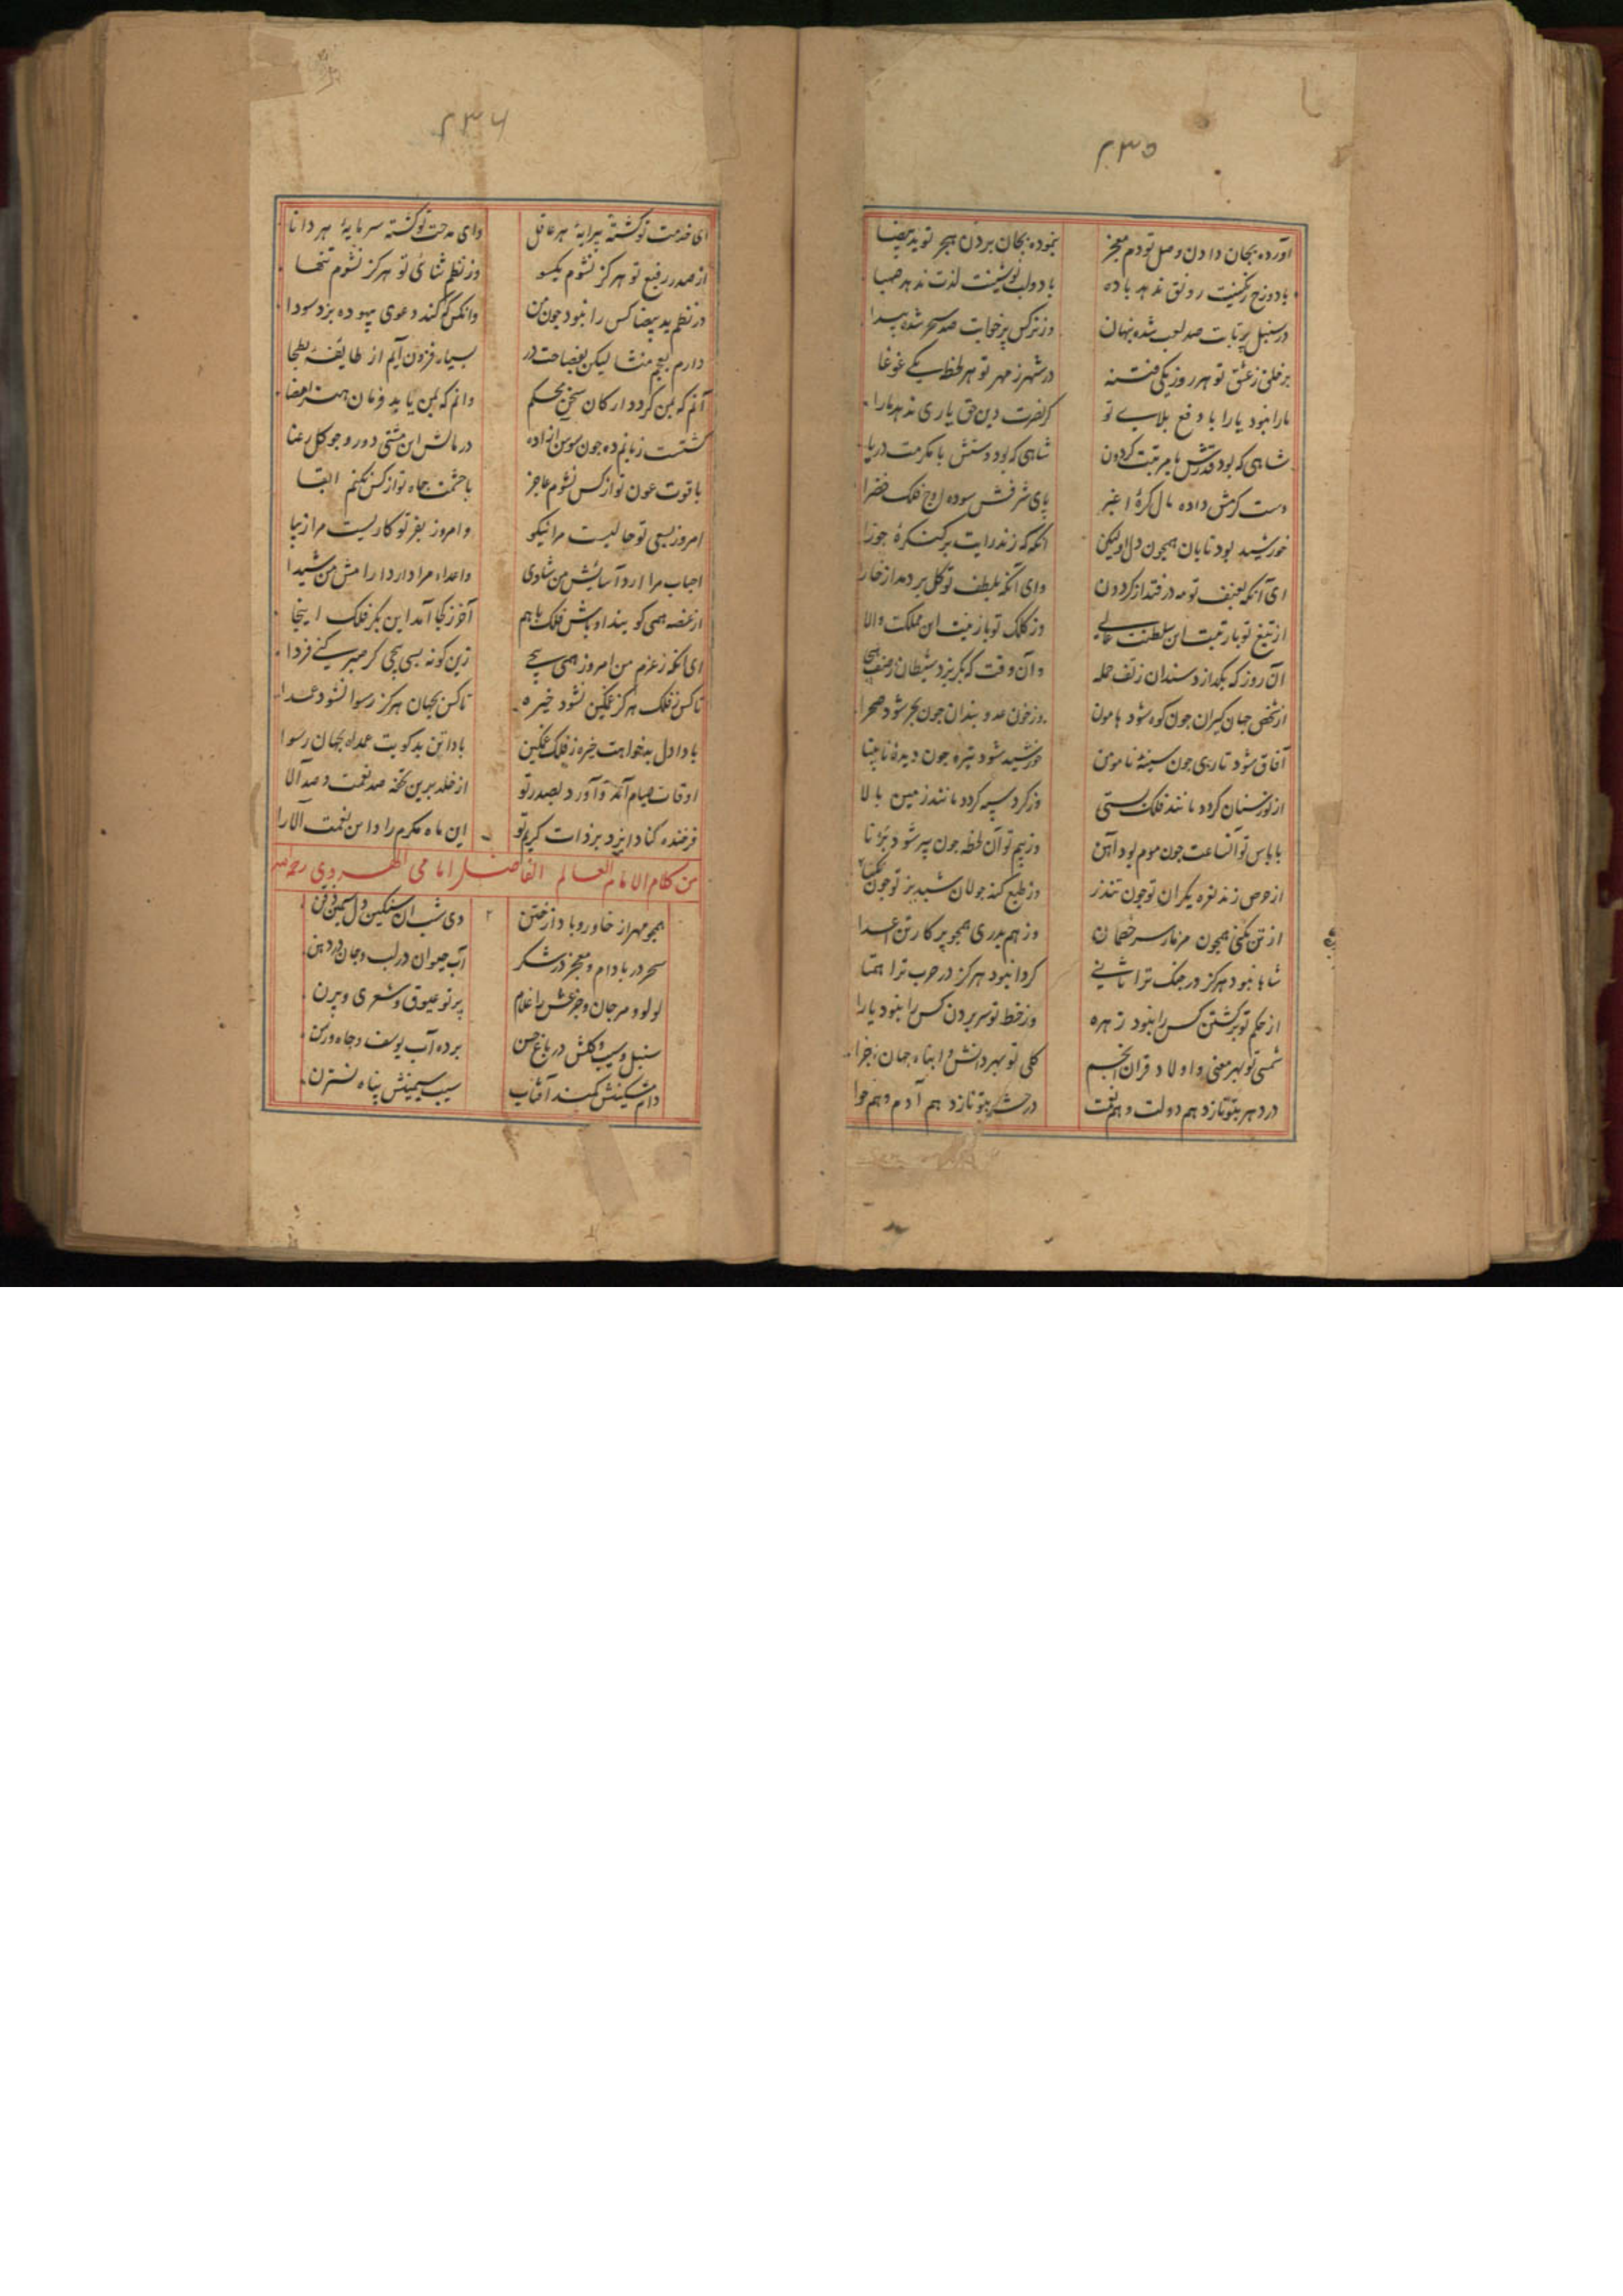 ۲۳۵
آورده بجان دادن وصل تو دم معجز بنموده بجان بردن هجر تو ید بیضا
با دو رخ رنگینت رونق ندهد باده با دو لب نوشینت لذت ندهد صهبا
در سنبل پرتابت صد لعب شده پنهان وز نرکس پرخوابت صد سحر شده پیدا
بر خلق ز عشق تو هر روز یکی فتنه در شهر ز مهر تو هر لحظه یکے غوغا
ما را نبود یارا با دفع بلاے تو کر نصرت دین حق یاری ندهد ما را
شاهی که بود قدرش با مرتبت کردون شاهی که بود دستش با مکرمت دریا
دست کرمش داده مال کرهٔ اغبر پای شرفش سوده اوج فلک خضرا
خورشید بود تابان همچون دل او لیکن آنکه که زند رایت بر کنکرهٔ جوزا
ای آنکه بعنف تو مه در فتد از کردون وای آنکه بلطف تو کل بر دمد از خارا
از تیغ تو با رتبت این سلطنت عالی وز کلک تو با زینت این مملکت والا
آن روز که بکدازد سندان ز تف حمله وآن وقت که بکریزد شیطان ز صف هیجا
از شخص جهان کیران چون کوه شود هامون وز خون عدو بندان چون بحر شود صحرا
آفاق شود تاری چون سینهٔ نامومن خورشید شود تیره چون دیدهٔ نابینا
از نور سنان کردد مانند فلک پستی وز کرد سپه کردد مانند زمین بالا
با باس تو آنساعت چون موم بود آهن وز بیم تو آن لحظه چون پیر شود برنا
از حرص زند نعره یکران تو چون تندر وز طبع کند جولان شبدیز تو چون نکبا
از تن بکنی همچون مزمار سر خصمان وز هم بدری همچو پرکار تن اعدا
شاها نبود هرکز در جنک ترا ثانی کردا نبود هرکز در حرب ترا همتا
از حکم تو برکشتن کس را نبود زهره وز خط تو سر بردن کس را نبود یارا
شمسی تو بهر معنی و اولاد قران انجم کلی تو بهر دانش و ابناء جهان اجزا
در دهر بتو نازد هم دولت و هم نعمت در حشر بتو نازد هم آدم و هم حوا
۲۳۶
ای خدمت تو کشته پیرایهٔ هر عاقل وای مدحت تو کشته سرمایهٔ هر دانا
از صدر رفیع تو هرکز نشوم یکسو وز نظم ثنای تو هرکز نشوم تنها
در نظم ید بیضا کس را نبود چون من وانکس که کند دعوی بیهوده پزد سودا
دارم بعجم منشا لیکن بفصاحت در بسیار فزون آیم از طایفهٔ بطحا
آنم که بمن کردد ارکان سخن محکم وانم که بمن یابد فرمان هنر امضا
کشتست زبانم ده چون سوسن آزاده در مالش این مشتی دو رو چو کل رعنا
با قوت عون تو از کس نشوم عاجز با حشمت جاه تو از کس نکنم ابقا
امروز بسعی تو حالیست مرا نیکو وامروز بفر تو کاریست مرا زیبا
احباب مرا آرد آسایش من شادی واعداء مرا دارد آرامش من شیدا
از غصه همی کویند اوباش فلک با هم آخر ز کجا آمد این بکر فلک اینجا
ای آنکه ز عزم من امروز همی پیچی زین کونه بسی پیچی کر صبر کنے فردا
تا کس ز فلک هرکز غمکین نشود خیره تا کس بجهان هرکز رسوا نشود عمدا
بادا دل بدخواهت خیره ز فلک غمکین بادا تن بدکویت عمدا بجهان رسوا
اوقات صیام آمد و آورد بصدر تو از خلد برین تحفه صد نعمت و صد آلا
فرخنده کناد ایزد بر ذات کریم تو این ماه مکرم را و این نعمت آلا را
من کلام الامام العالم الفاضل امامی الهروی رحمه الله
همچو مهر از خاور و باد از ختن دی شب آن سنکین دل سیمین ذقن
سحر در بادام و معجز در شکر آب حیوان در لب و جان در دهن
لولو و مرجان و جزعش را غلام پرتو عیوق و شعری و پرن
سنبل و سیب و کلش در باغ حسن برده آب یوسف و چاه و رسن
دام مشکینش کمند آفتاب سیب سیمینش پناه نسترن